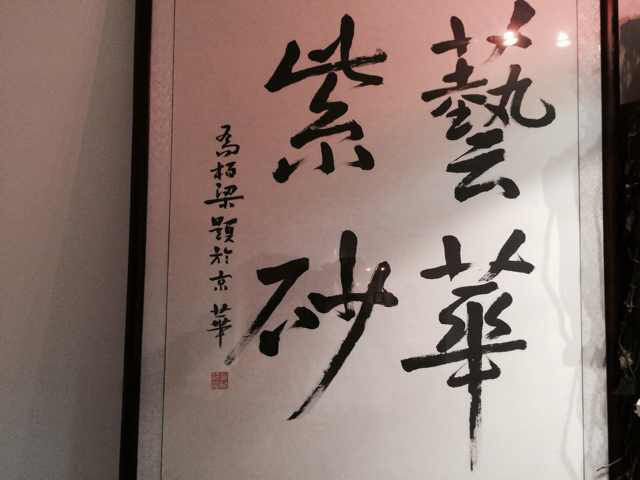 藝華
紫砂
喬柏梁題於京華